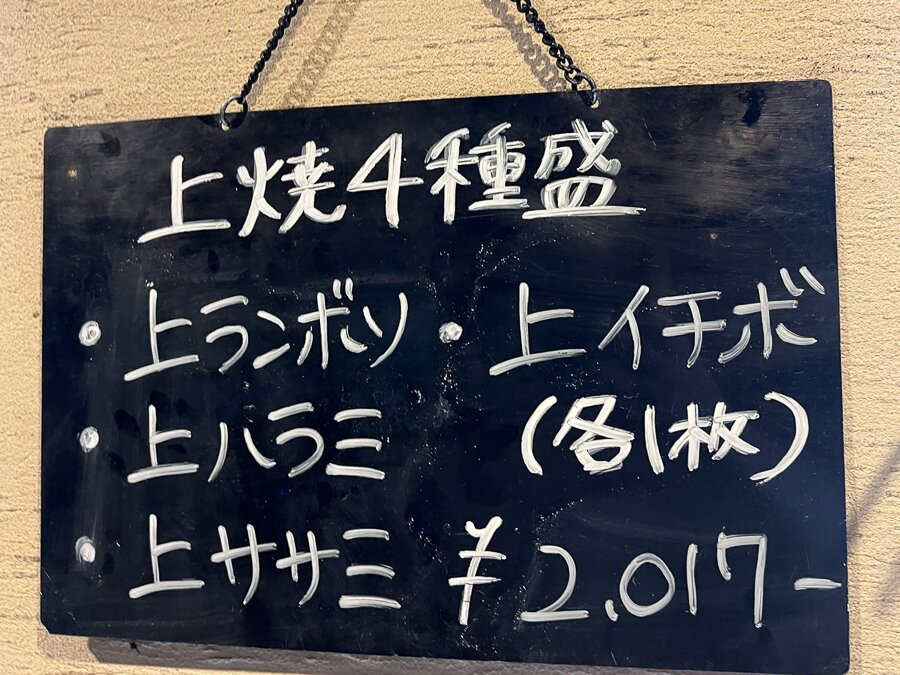 上焼4種盛
・上ランボソ ・上イチボ
・上ハラミ (各1枚)
・上ササミ ¥2.017-